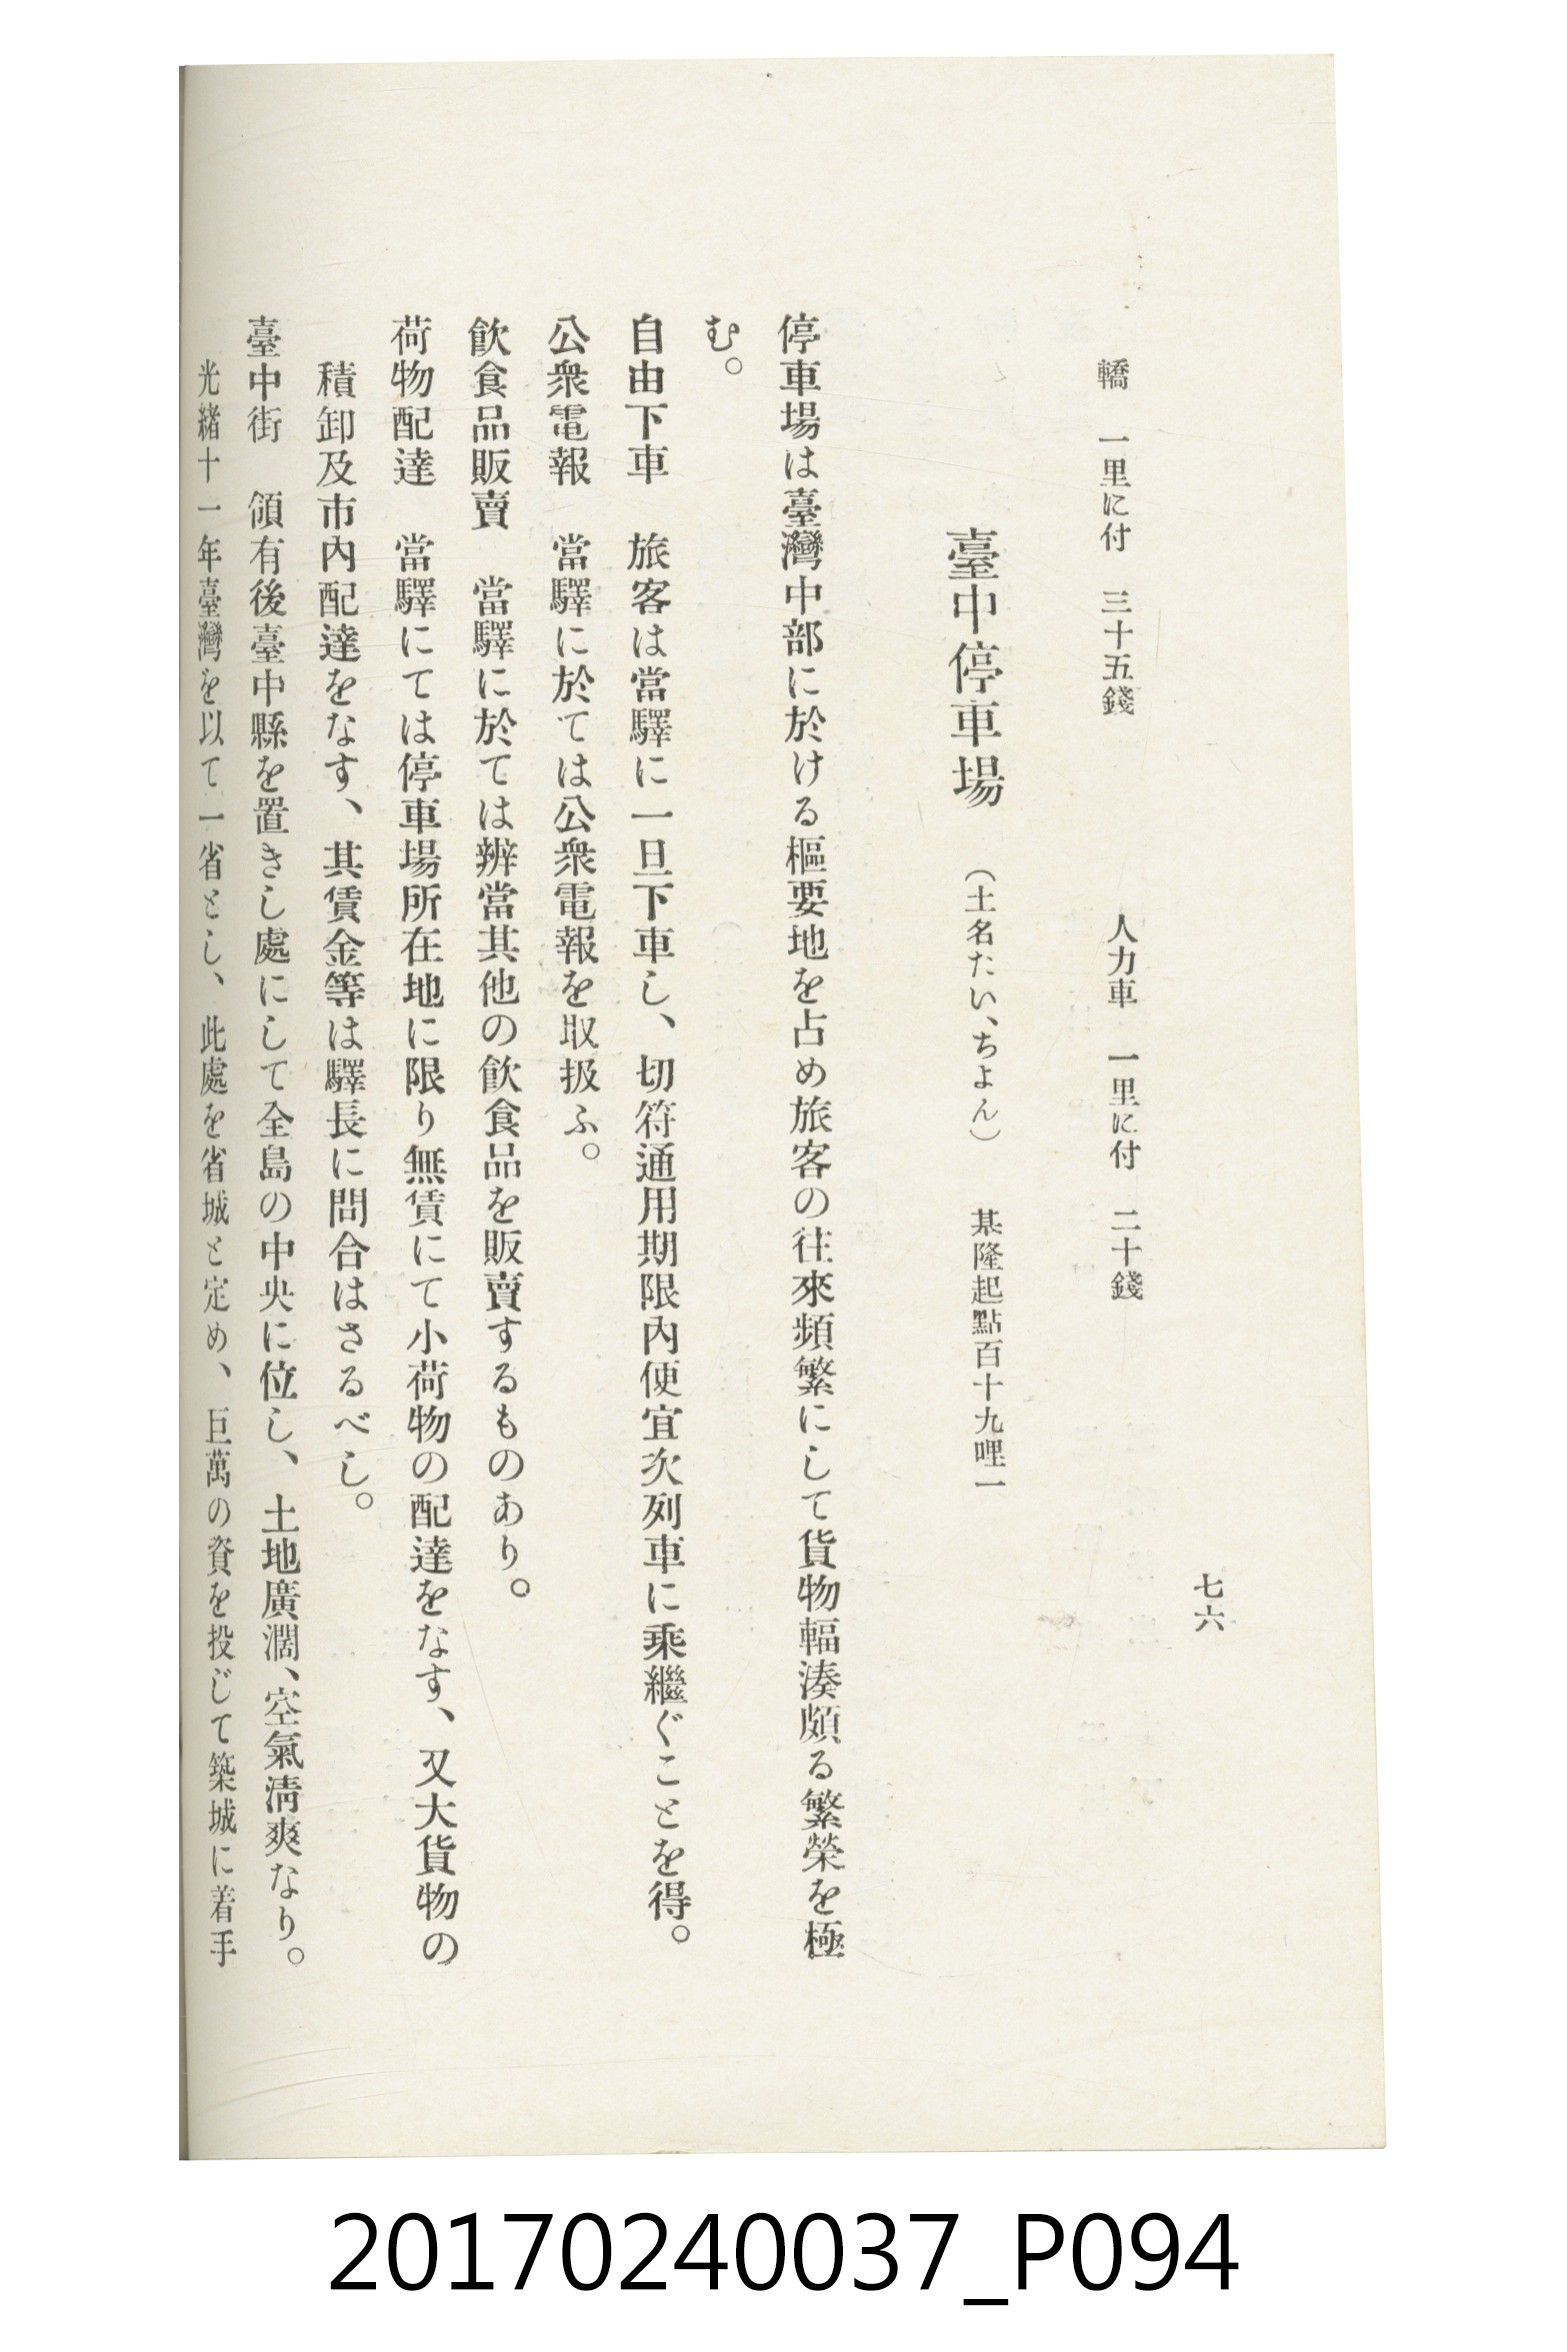 七六
轎　一里に付　三十五錢　人力車　一里に付　二十錢
臺中停車場　（土名たい、ちよん）　基隆起點百十九哩一
停車場は臺灣中部に於ける樞要地を占め旅客の往來頻繁にして貨物輻湊頗る繁榮を極
む。
自由下車　旅客は當驛に一旦下車し、切符通用期限內便宜次列車に乘繼ぐことを得。
公衆電報　當驛に於ては公衆電報を取扱ふ。
飮食品販賣　當驛に於ては辨當其他の飮食品を販賣するものあり。
荷物配達　當驛にては停車場所在地に限り無賃にて小荷物の配達をなす、又大貨物の
積卸及市內配達をなす、其賃金等は驛長に問合はさるべし。
臺中街　領有後臺中縣を置きし處にして全島の中央に位し、土地廣濶、空氣淸爽なり。
光緒十一年臺灣を以て一省とし、此處を省城と定め、巨萬の資を投じて築城に着手
20170240037_P094